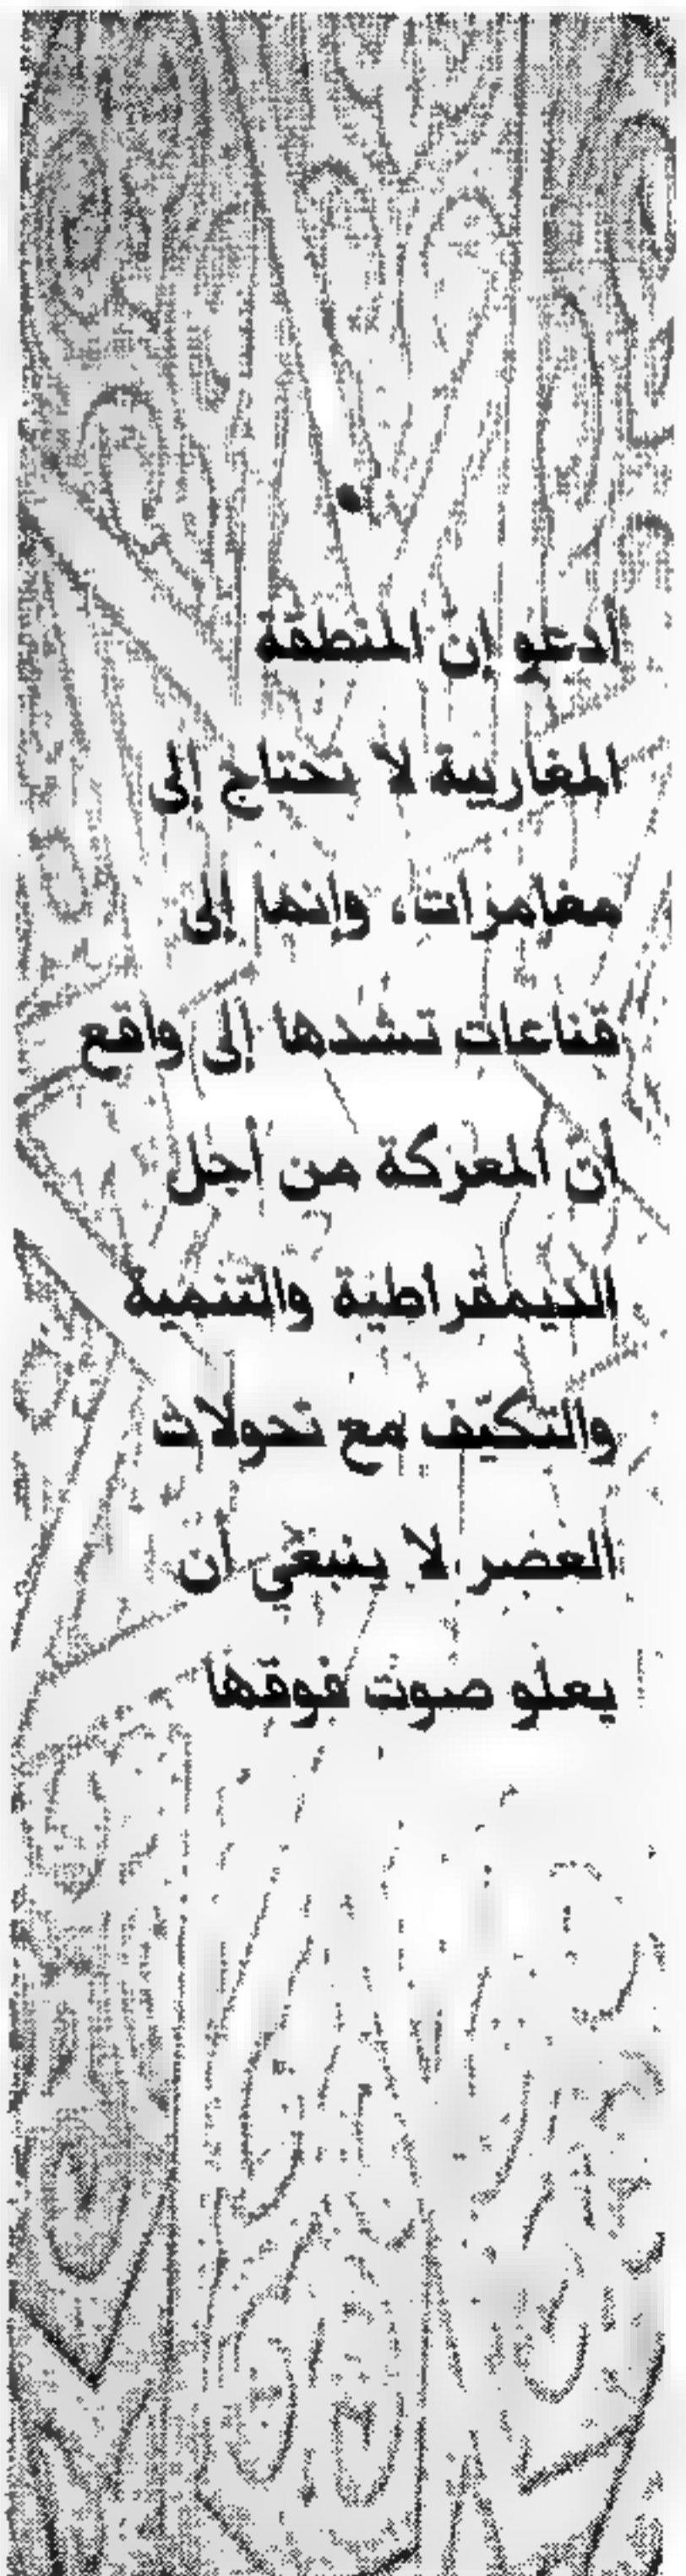 أدعو إن المنطقة
المغاربية لا تحتاج إلى
مغامرات، وإنما إلى
قناعات تشدها إلى واقع
أن المعركة من أجل
الديمقراطية والتنمية
والتكيّف مع تحولات
العصر لا ينبغي أن
يعلو صوت فوقها